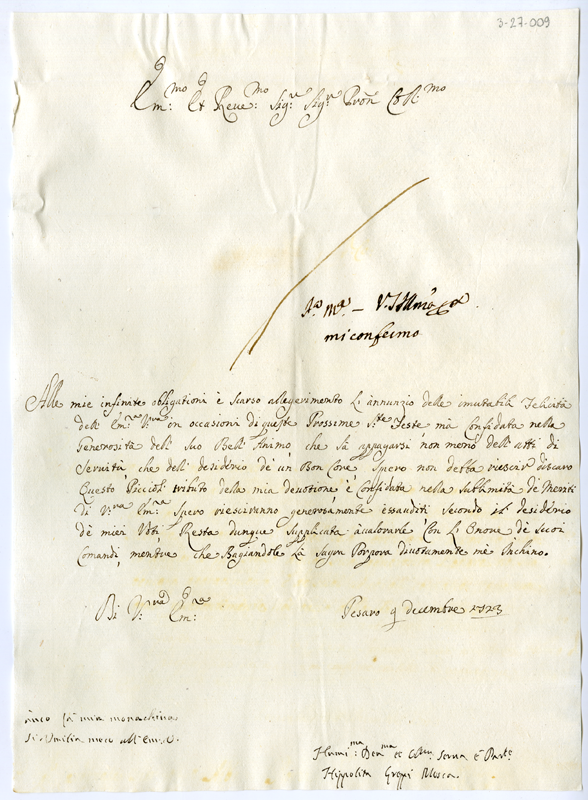 3-27-009
Em:mo Et Reue:mo Sig:re Sig:re Pròn Col:mo
miconfermo
Alle mie infinite obligationi è scarso allegerimento Li annunzio delle imutabili Felicità
dell' Em:za V:ra in occasioni di queste Prossime S:te Feste mà Confidata nella
Generosità del Suo Bell' Animo, che sà appagarsi non meno dell' atti di
Seruitù che dell' desidèrio de' un Bon Core, Spero non detta riescir discaro
Questo Picciol tributo della mia deuotione è Confidata nella Sublimità de Meriti
di V:ra Em:za Spero riesciranno generosamente essauditi Secondo il desidèrio
dè miei Voti, Resta dunque Supplicata àualorarle Con L' Onore dè Suoi
Comandi, mentre che Bagiandole La Sagra Porpora diuotamente mè Inchino.
Di V:ra Em:za
Pesaro 9 decembre 1723
anco la mia monachina
si Umilia meco all' Em.V.
Humi:ma Deu:ma et Obl:ma Serua è Part:e
Hippolita Greppi Mosca